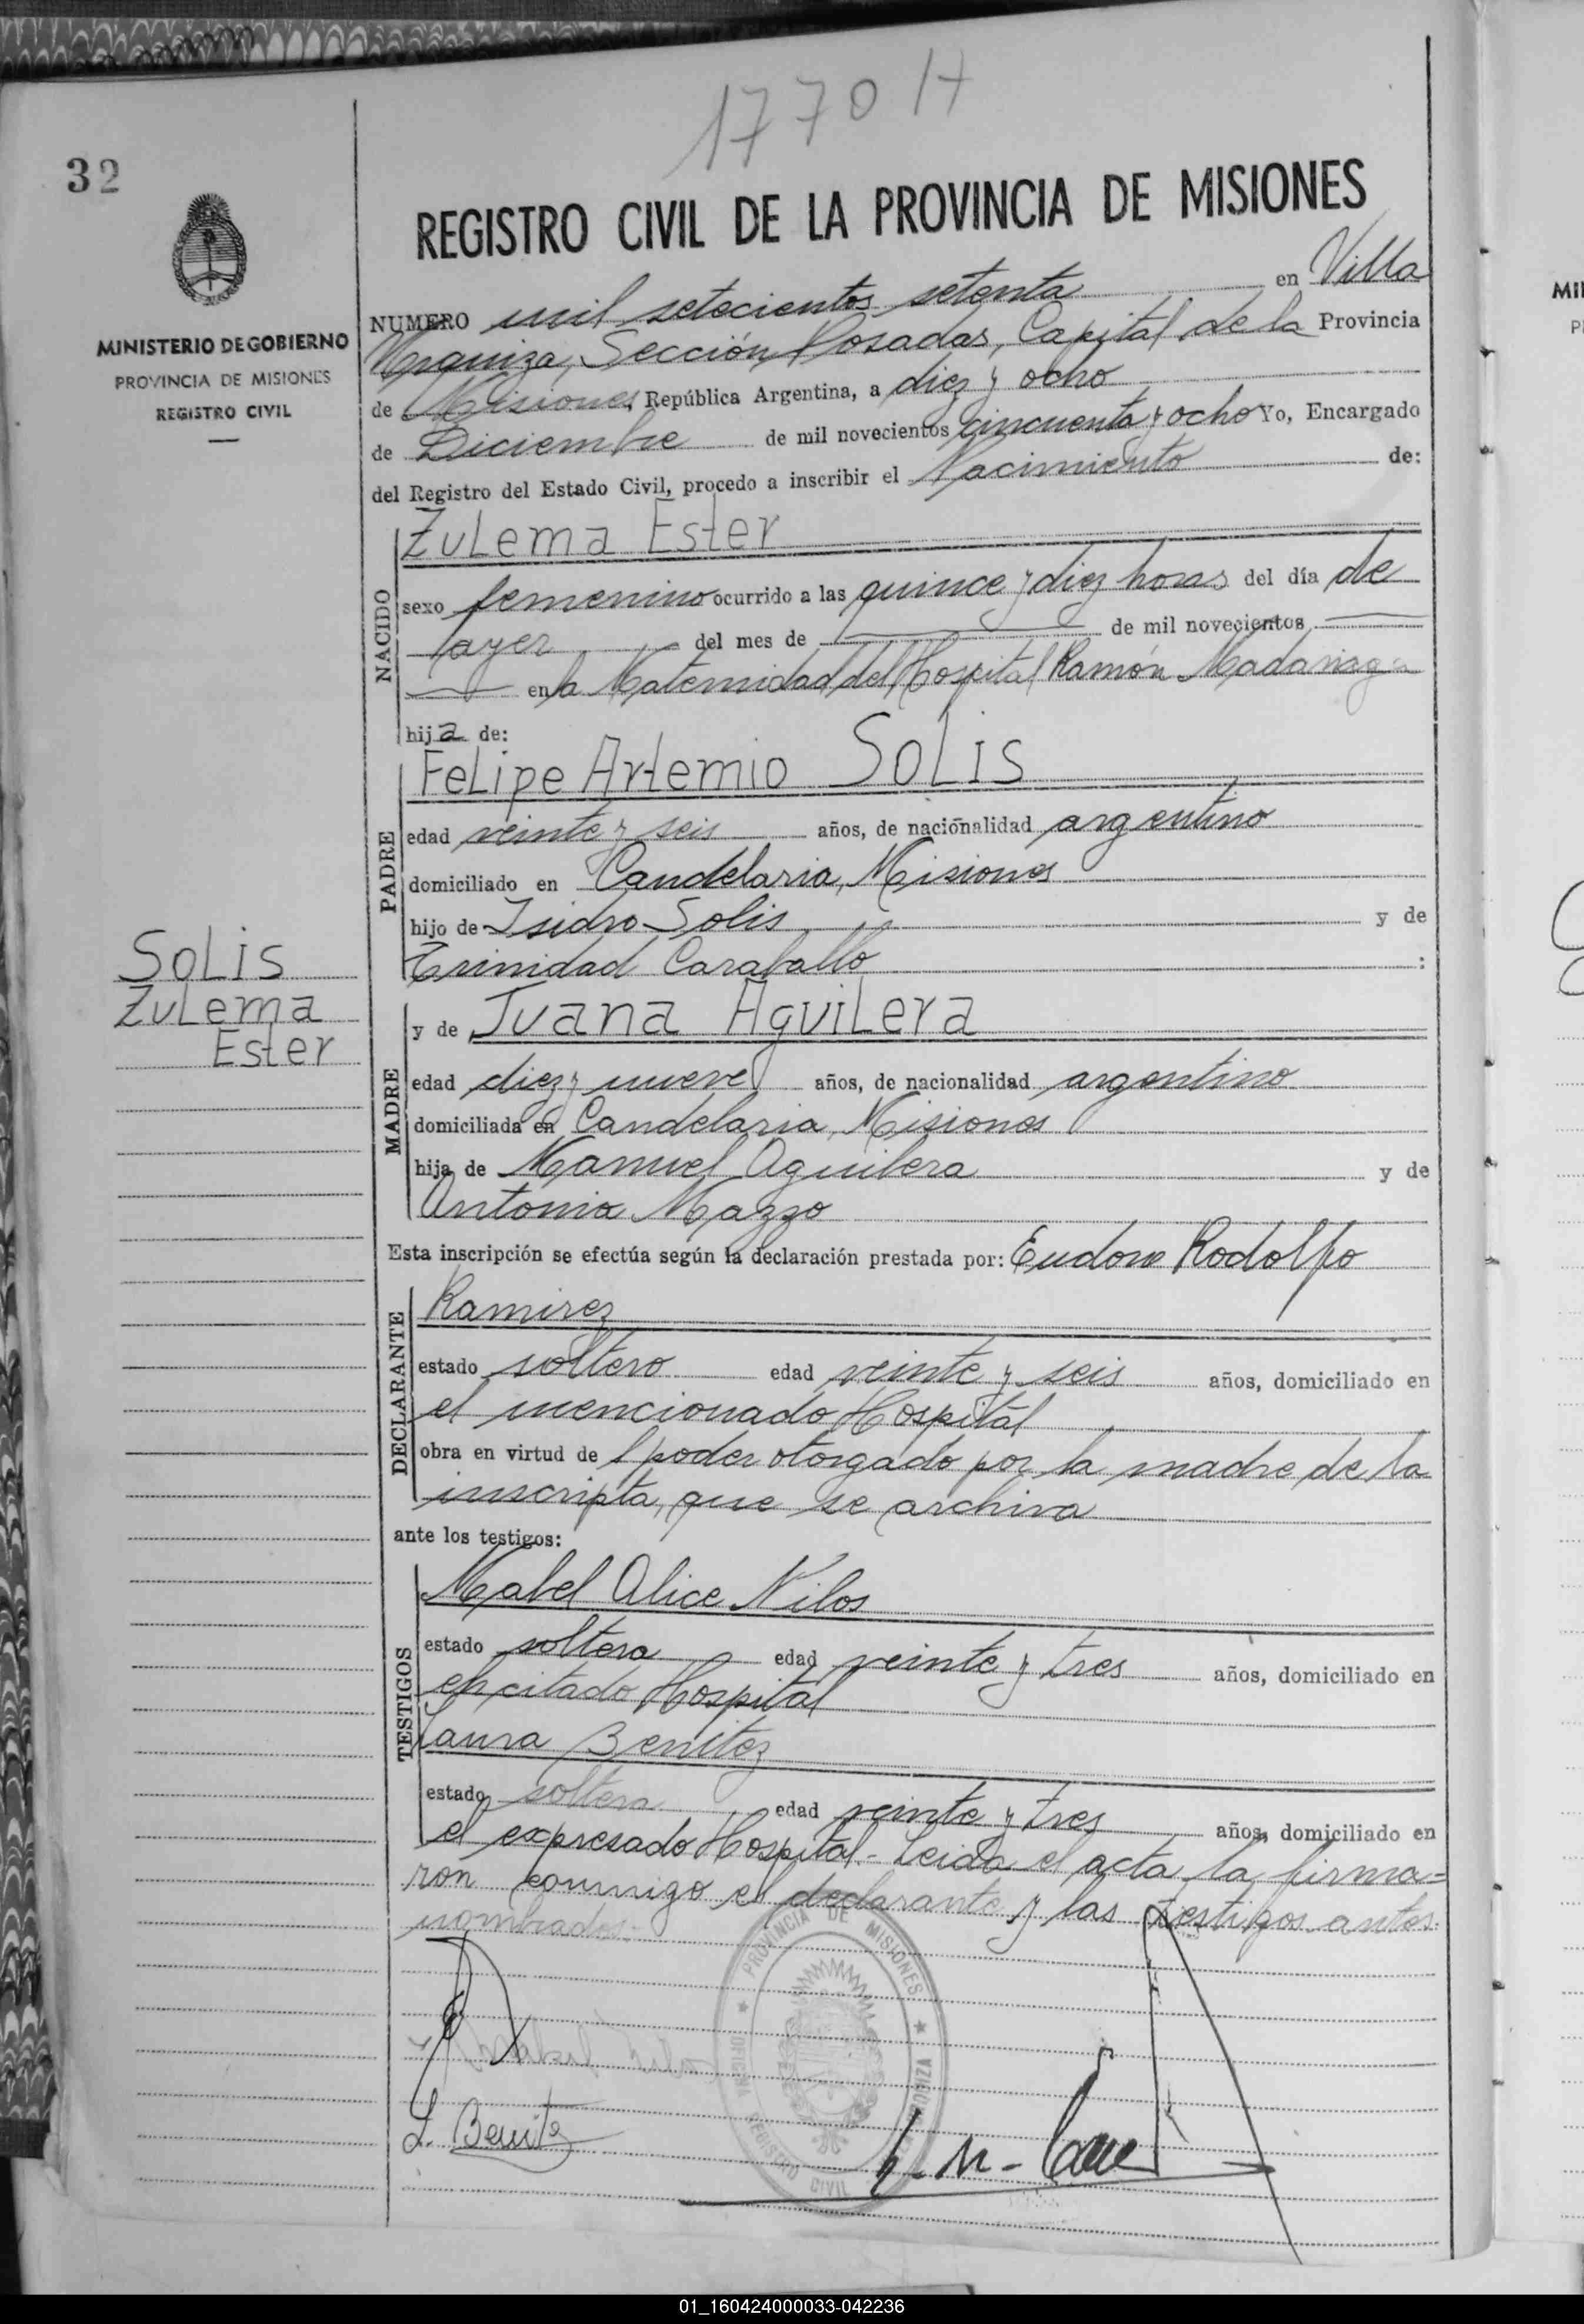 1770 H
32
REGISTRO CIVIL DE LA PROVINCIA DE MISIONES
MINISTERIO DE GOBIERNO
PROVINCIA DE MISIONES
REGISTRO CIVIL
NUMERO mil setecientos setenta en Villa
Urquiza, Sección Posadas, Capital de la Provincia
de Misiones, República Argentina, a diez y ocho
de Diciembre de mil novecientos cincuenta y ocho Yo, Encargado
del Registro del Estado Civil, procedo a inscribir el Nacimiento de:
NACIDO
Zulema Ester
sexo femenino ocurrido a las quince y diez horas del día de
ayer del mes de de mil novecientos
en la Maternidad del Hospital Ramón Madariaga
hija de:
PADRE
Felipe Artemio Solis
edad veinte y seis años, de nacionalidad argentino
domiciliado en Candelaria, Misiones
hijo de Isidro Solis y de
Trinidad Caraballo :
Solis
Zulema
Ester
MADRE
y de Juana Aguilera
edad diez y nueve años, de nacionalidad argentino
domiciliada en Candelaria, Misiones
hija de Manuel Aguilera y de
Antonia Mazzo
Esta inscripción se efectúa según la declaración prestada por: Eudoro Rodolfo
DECLARANTE
Ramirez
estado soltero edad veinte y seis años, domiciliado en
el mencionado Hospital
obra en virtud de l poder otorgado por la madre de la
inscripta, que se archiva
ante los testigos:
TESTIGOS
Mabel Alice Nilos
estado soltera edad veinte y tres años, domiciliado en
el citado Hospital
Laura Benitez
estado soltera edad veinte y tres años, domiciliado en
el expresado Hospital.- Leida el acta, la firma=
ron conmigo el declarante y las testigos antes
nombrados.-
PROVINCIA DE MISIONES
OFICINA REGISTRO CIVIL
L. Benitez
01_160424000033-042236